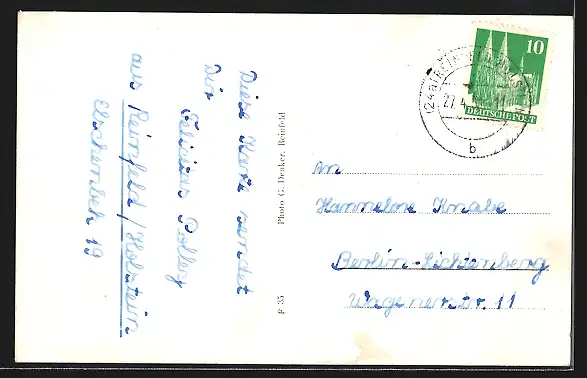 Diese Karte sendet
Dir Felicitas Polley
aus Reinfeld/Holstein
Elschenbek 19
Photo G. Denker, Reinfeld
F 35
10
DEUTSCHE POST
(24a) REINFELD (HOLST)
27.4.
b
An
Hannelore Knabe
Berlin-Lichtenberg
Wagenerstr. 11